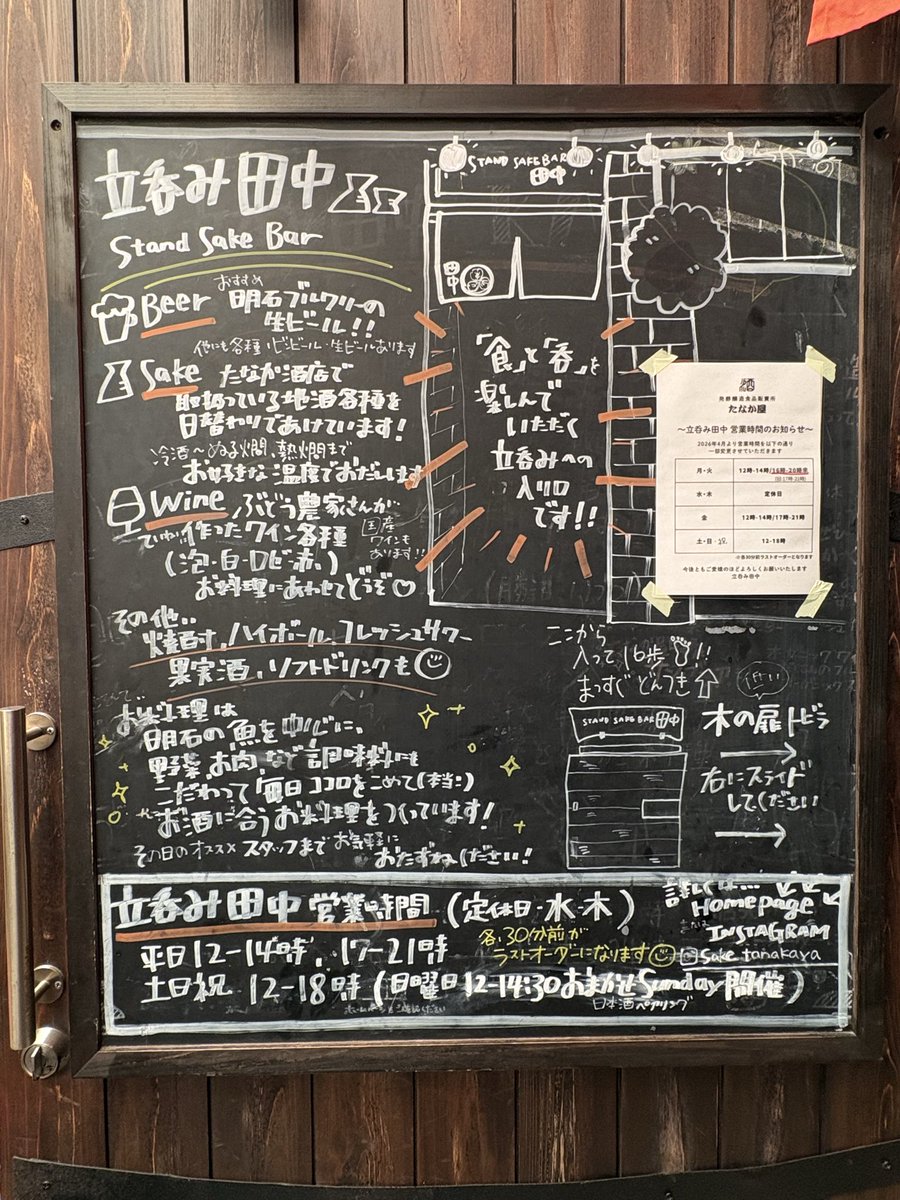 立呑み 田中
Stand Sake Bar
Beer
おすすめ
明石ブルワリーの
生ビール!!
他にも各種ビンビール・生ビールあります
Sake
たなか酒店で
取扱っている地酒各種を
日替わりであけています!
冷酒〜ぬる燗、熱燗まで
お好きな温度でおだしします
Wine
ぶどう農家さんが
ていねいに作ったワイン各種
国産
ワインも
あります!!
(泡・白・ロゼ・赤)
お料理にあわせてどうぞ♡
その他..
焼酎、ハイボール、フレッシュサワー
果実酒、ソフトドリンクも
お料理は
明石の魚を中心に、
野菜、お肉、など調味料にも
こだわって「毎日ココロをこめて(本当:)
お酒に合うお料理をつくっています!
その日のオススメ スタッフまで お気軽に
おたずねください!
STAND SAKE BAR
田中
田中
「食」と「呑」を
楽しんで
いただく
立呑みへの
入り口
です!!
酒
発酵醸造食品販賣所
たなか屋
〜立呑み田中 営業時間のお知らせ〜
2026年4月より営業時間を以下の通り
一部変更させていただきます
月・火 12時-14時/16時-20時半
(旧:17時-21時)
水・木 定休日
金 12時-14時/17時-21時
土・日・祝 12-18時
※各30分前ラストオーダーとなります
今後ともご愛顧のほどよろしくお願いいたします
立呑み田中
ここから
入って16歩!!
まっすぐどんつき↑
低い
STAND SAKE BAR 田中
木の扉トビラ
→
右にスライド
してください
→
立呑み 田中 営業時間 (定休日・水・木)
平日12-14時、17-21時
各、30分前が
ラストオーダーになります
土日祝 12-18時 (日曜日12-14:30おまかせSunday開催)
日本酒ペアリング
詳しくは...
Homepage
または
INSTAGRAM
Sake tanakaya